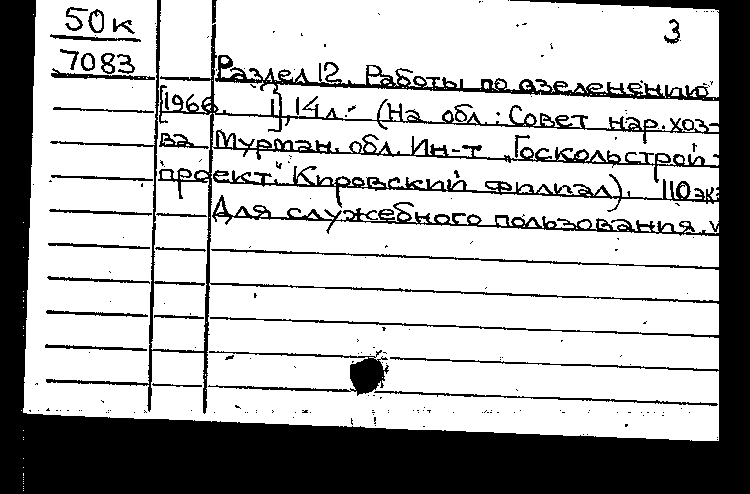 50к 3
7083
Раздел 12. Работы по озеленению
[1966. I], 14 л. (На обл.: Совет нар. хоз-
ва Мурман. обл. Ин-т „Госкольстрой-
проект." Кировский филиал). 110 экз
Для служебного пользования.